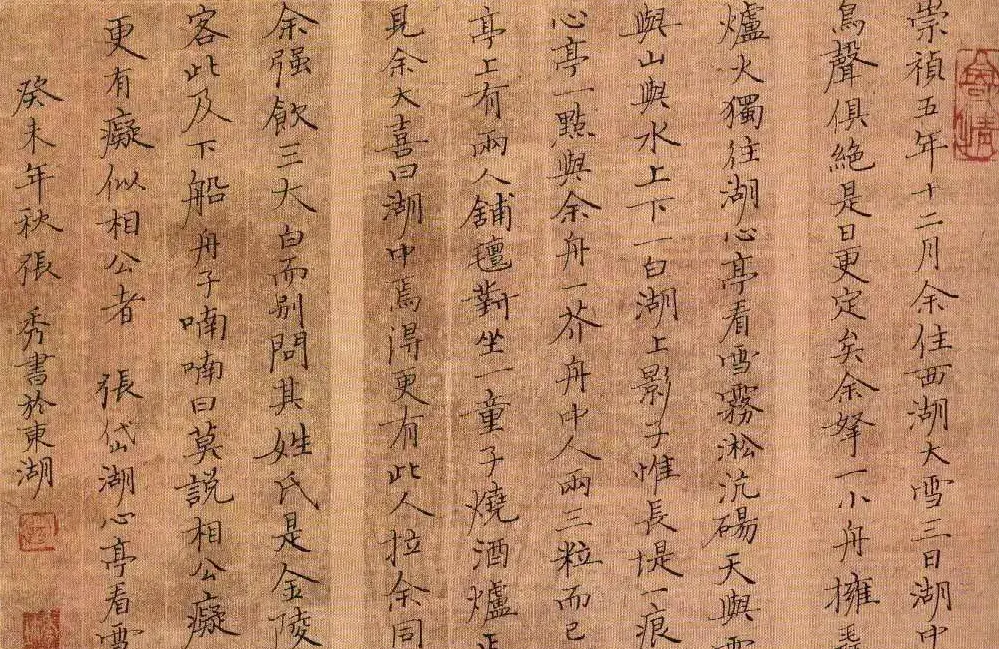 崇禎五年十二月余住西湖大雪三日湖中
鳥聲俱絶是日更定矣余拏一小舟擁
爐火獨往湖心亭看雪霧淞沆碭天與
與山與水上下一白湖上影子惟長堤一痕
心亭一點與余舟一芥舟中人兩三粒而已
亭上有兩人鋪氊對坐一童子燒酒爐正
見余大喜曰湖中焉得更有此人拉余同
余强飲三大白而别問其姓氏是金陵
客此及下船舟子喃喃曰莫説相公癡
更有癡似相公者 張岱湖心亭看雪
癸未年秋張秀書於東湖